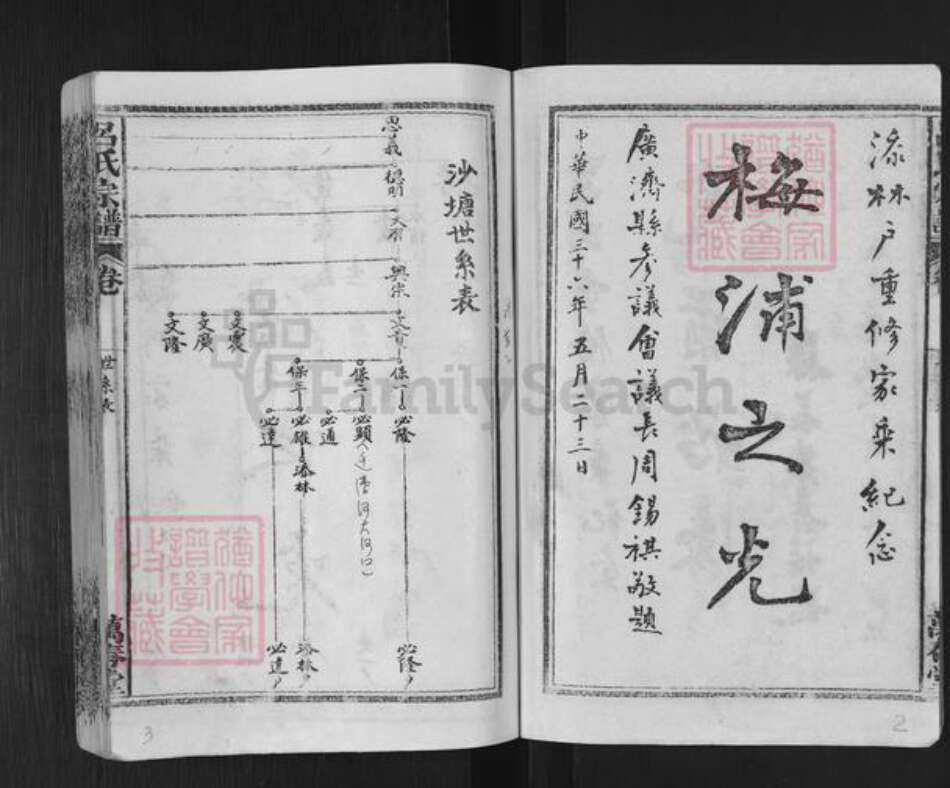 添林戶重修家乘紀念
梅浦之光
廣濟縣參議會議長周錫祺敬題
中華民國三十六年五月二十三日
2
沙塘世系表
思義
德明
興宗
保一
必隆
必隆
保二
必顯
必通
保年
必雄
添林
添林
必達
必達
文震
文廣
文隆
呂氏宗譜
卷
世系表
萬春堂
3
FamilySearch